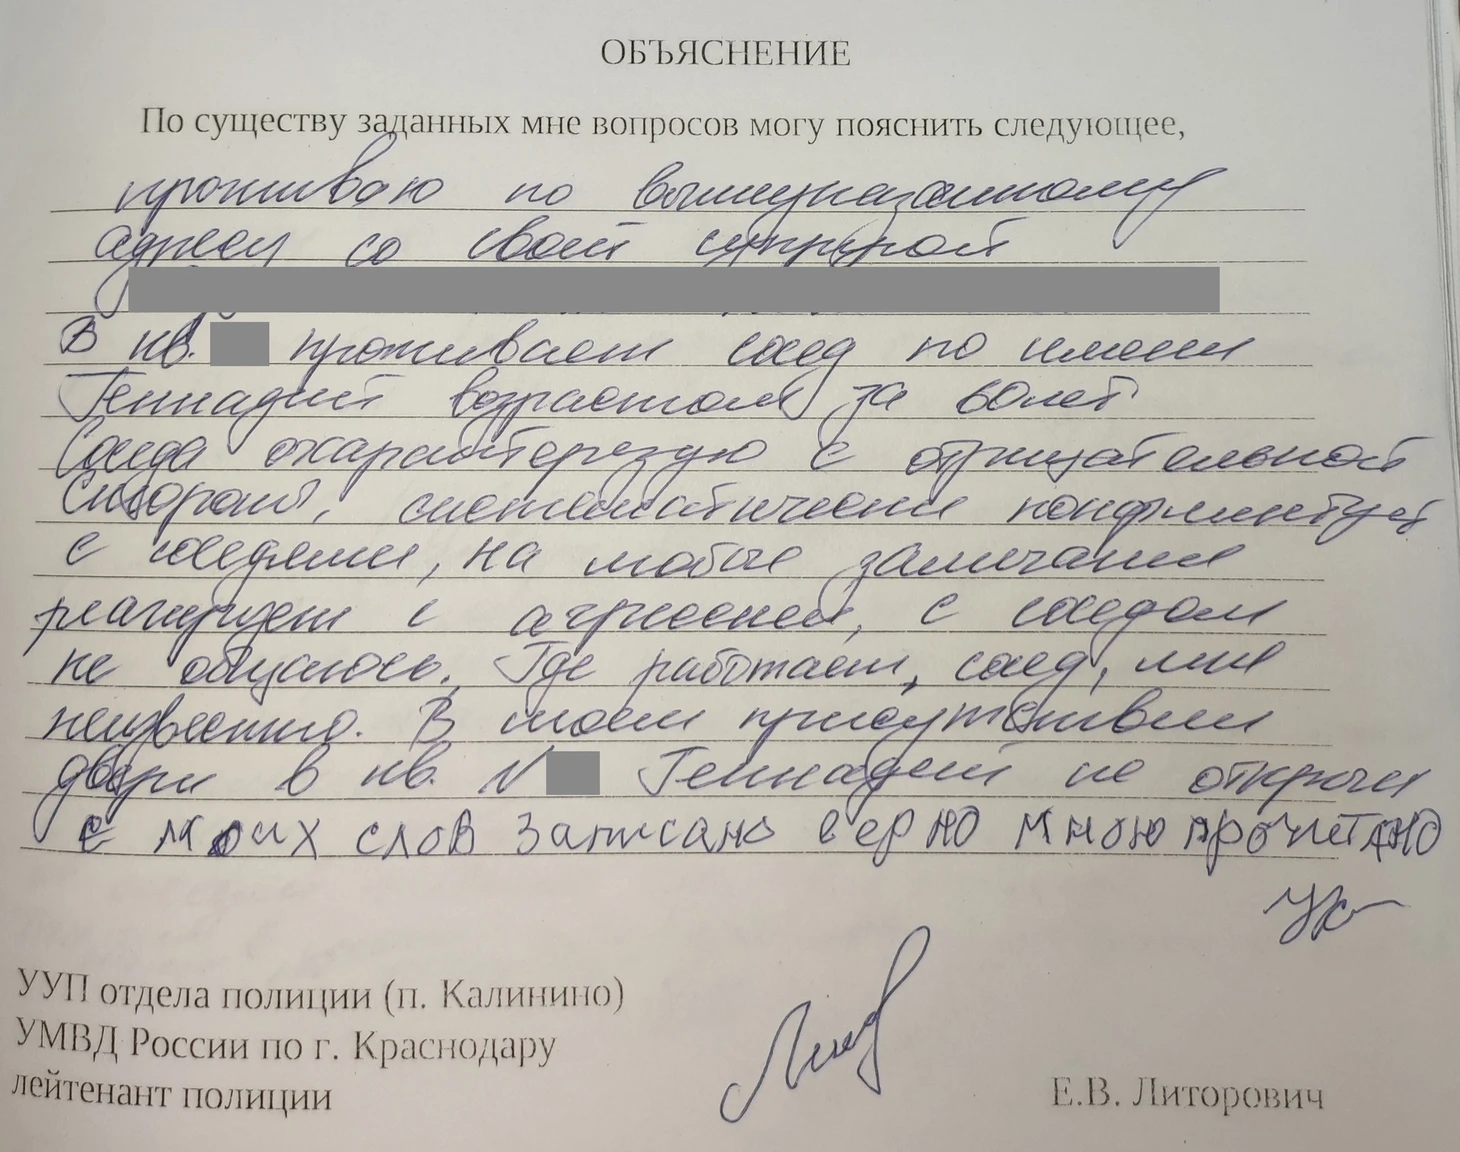 ОБЪЯСНЕНИЕ
По существу заданных мне вопросов могу пояснить следующее,
проживаю по вышеуказанному
адресу со своей супругой
В кв. проживает сосед по имени
Геннадий возрастом за 60 лет
Соседа охарактерезую с отрицательной
стороны, систематически конфликтует
с соседями, на любые замечания
реагирует с агрессией, с соседом
не общаюсь. Где работает, сосед, мне
неизвестно. В моем присутствии
двери в кв. № Геннадий не открыл
с моих слов записано верно мною прочитано
УУП отдела полиции (п. Калинино)
УМВД России по г. Краснодару
лейтенант полиции
Е.В. Литорович